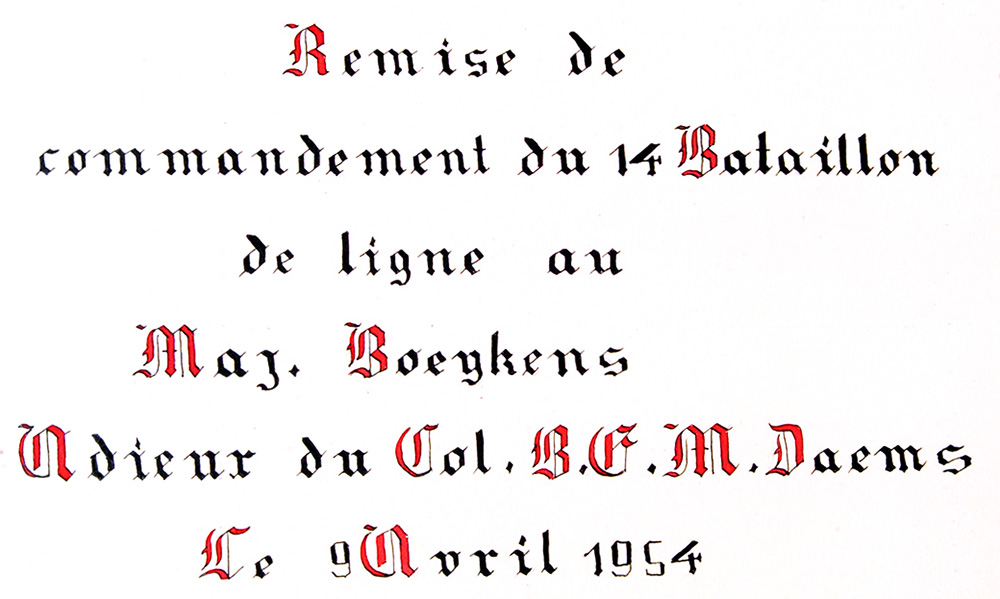 Remise de
commandement du 14 Bataillon
de ligne au
Maj. Boeykens
Adieux du Col. B.E.M. Daems
Le 9 Avril 1954